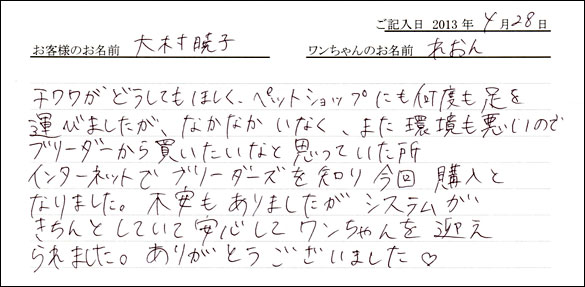 ご記入日 2013 年 4 月 28 日
お客様のお名前 大村暁子 ワンちゃんのお名前 れおん
チワワがどうしてもほしく、ペットショップにも何度も足を
運びましたが、なかなかいなく、また環境も悪いので
ブリーダーから買いたいなと思っていた所
インターネットでブリーダーズを知り今回購入と
なりました。不安もありましたがシステムが
きちんとしていて安心してワンちゃんを迎え
られました。ありがとうございました♡